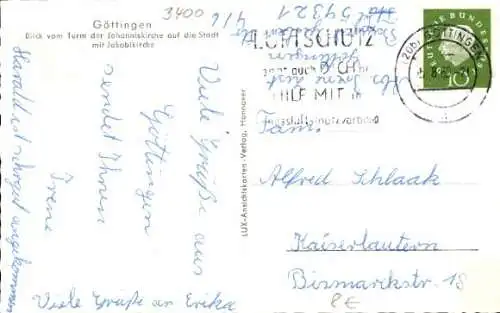 Göttingen
Blick vom Turm der Johanniskirche auf die Stadt
mit Jakobikirche
3400
4/6
Viele Grüße aus
Göttingen
sendet Ihnen
Irene
Harald ist schon gut angekommen
Viele Grüße an Erika
LUX-Ansichtskarten-Verlag, Hannover
54321
LUFTSCHUTZ
auch DICH
HILF MIT im
DEUTSCHE BUNDESPOST
10
(20b) GÖTTINGEN
Fam.
Alfred Schlaak
Kaiserlautern
Bismarckstr. 18
8€